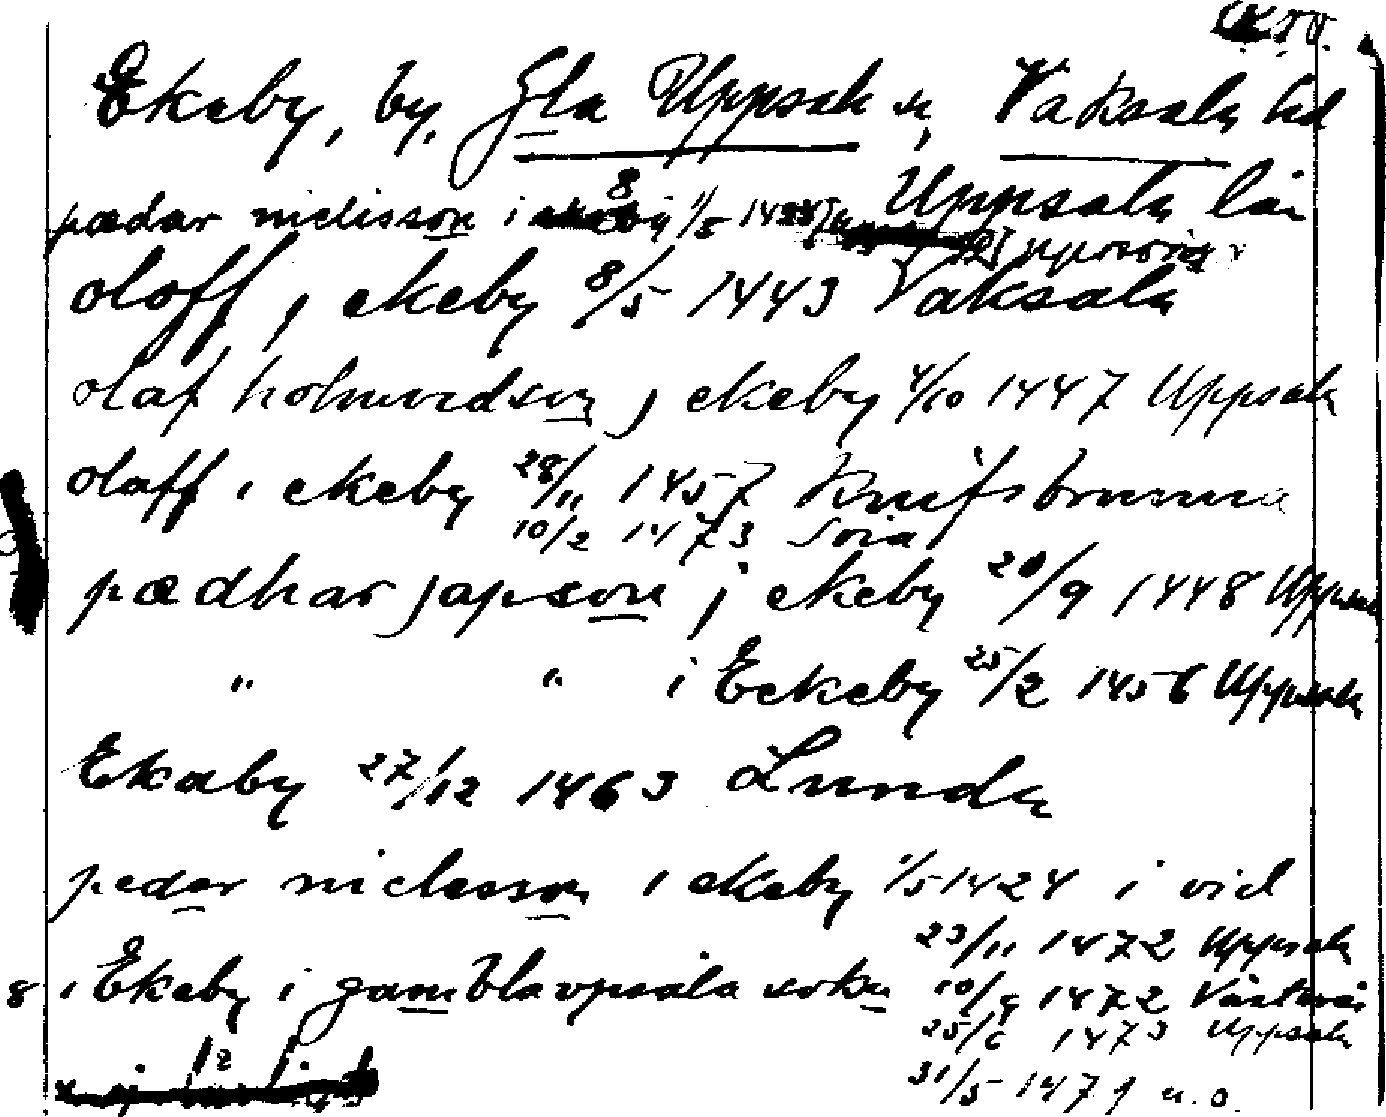 Ekeby, by, Gla Uppsala sn, Vaksala hd
Uppsala län
pædar niclisson i
oloff j ekeby 8/5 1443 Vaksala
olaf holmvidson j ekeby 4/10 1447 Uppsala
olaff i ekeby 28/11 1457 Knifsbrunna
10/2 1473 Soia
pædhar japson j ekeby 20/9 1448 Uppsala
" " i Eekeby 25/2 1456 Uppsala
Ekaby 27/12 1463 Lunda
pedar niclesson i ekeby 1/5 1424 i vid
23/11 1472 Uppsala
8 i Ekeby i gambla vpsala sokn 10/9 1472 Västerås
25/6 1473 Uppsala
31/5 1479 u.o.